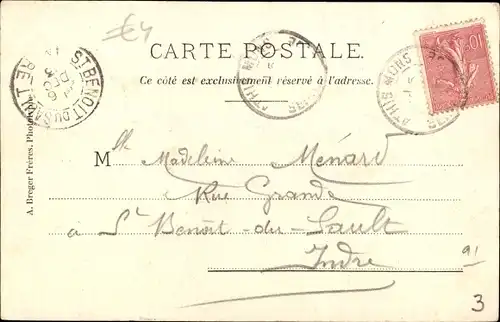 €4
CARTE POSTALE.
Ce côté est exclusivement réservé à l'adresse.
ST BENOIT DU SAULT
ATHIS MONS
10
A. Breger Frères,
Mlle Madeleine Ménard
Rue Grande
à St Benoît-du-Sault
Indre
91
3